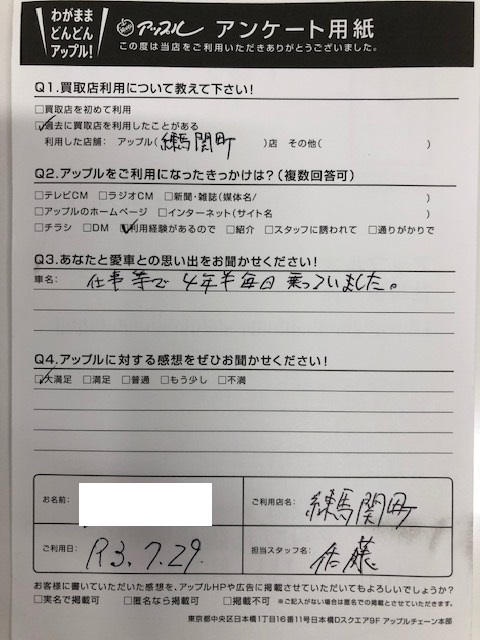 わがまま
どんどん
アップル!
アップル アンケート用紙
この度は当店をご利用いただきありがとうございました。
Q1.買取店利用について教えて下さい!
□買取店を初めて利用
☑過去に買取店を利用したことがある
利用した店舗: アップル( 練馬関町 )店 その他( )
Q2.アップルをご利用になったきっかけは?(複数回答可)
□テレビCM □ラジオCM □新聞・雑誌(媒体名/ )
□アップルのホームページ □インターネット(サイト名 )
□チラシ □DM ☑利用経験があるので □紹介 □スタッフに誘われて □通りがかりで
Q3.あなたと愛車との思い出をお聞かせください!
車名: 仕事等で 4年半毎日 乗っていました。
Q4.アップルに対する感想をぜひお聞かせください!
☑大満足 □満足 □普通 □もう少し □不満
お名前: ご利用店名: 練馬関町
ご利用日: R3.7.29. 担当スタッフ名: 佐藤
お客様に書いていただいた感想を、アップルHPや広告に掲載させていただいてもよろしいでしょうか?
□実名で掲載可 □匿名なら掲載可 □掲載不可 ※ご記入がない場合は匿名での掲載とさせていただきます。
東京都中央区日本橋1丁目16番11号日本橋Dスクエア9F アップルチェーン本部